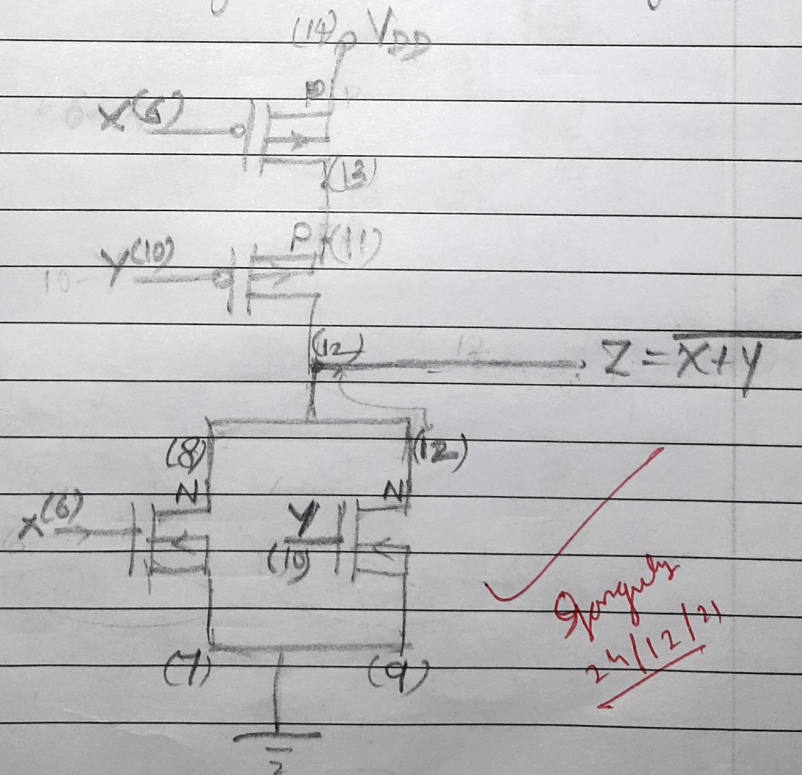 (14) VDD
P
X(6)
(13)
P (11)
Y(10)
(12)
Z = \overline{X+Y}
(8) (12)
N N
X(6) Y
(10)
(7) (9)
24/12/21